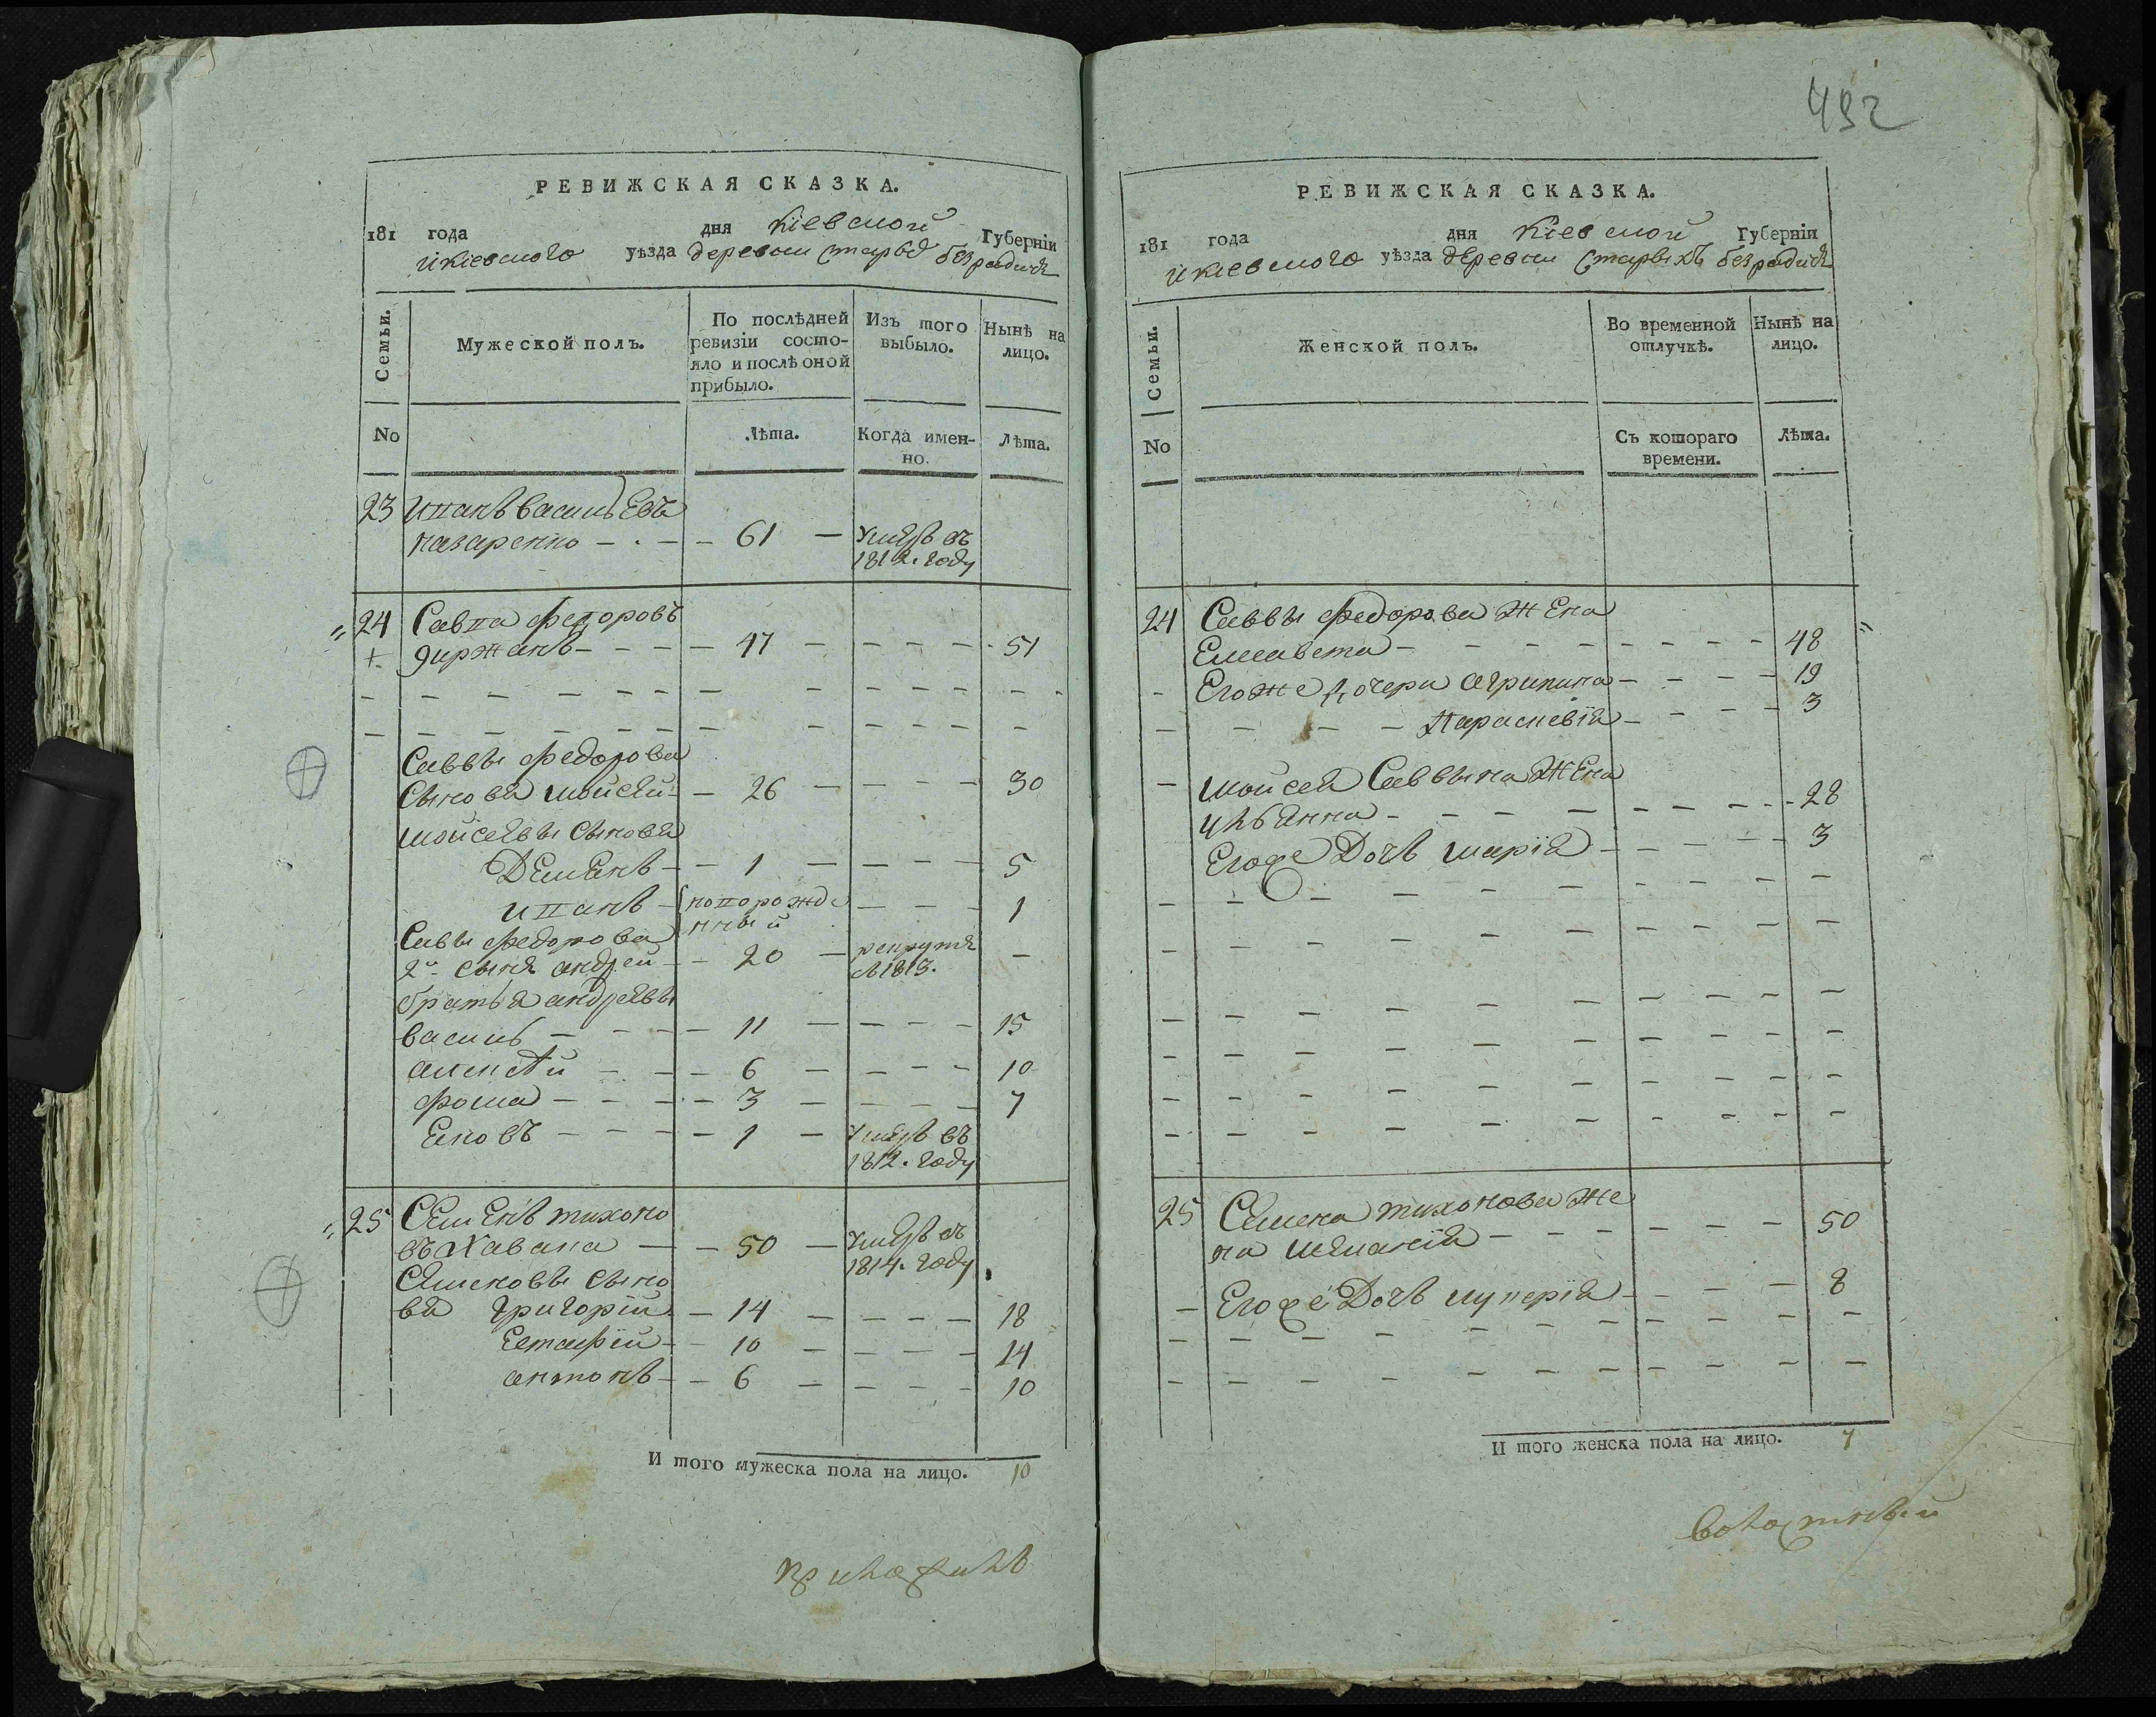 492
РЕВИЖСКАЯ СКАЗКА.
181 года дня Кіевской Губерніи
икіевского уѣзда деревни старыхъ безрадичъ
Семьи.
Мужеской полъ.
По послѣдней ревизіи состо-
яло и послѣ оной
прибыло.
Изъ того
выбыло.
Нынѣ на
лицо.
No
Лѣта.
Когда имен-
но.
Лѣта.
23 Иванъ васильЕвъ
назаренко 61 умеръ въ
1812. году
24 Савва федоровъ
диржанъ 47 51
Саввы федорова
сыновя мойсей 26 30
мойсеевы сыновя
ДЕмЕнъ 1 5
иванъ новорожде 1
нный
Савы федорова
2й сынъ андрей 20 рекрутъ
в1813.
братья андреевы
василь 11 15
алексѣй 6 10
фома 3 7
Яковъ 1 умеръ въ
1812. году
25 СЕмЕнъ тихоно
въ Хавана 50 умеръ въ
1814. году
Семеновы сыно
вя григорій 14 18
Естафій 10 14
антонъ 6 10
И того мужеска пола на лицо. 10
приложилъ
РЕВИЖСКАЯ СКАЗКА.
181 года дня Кіевской Губерніи
икіевского уѣзда деревни старыхъ безрадичъ
Семьи.
Женской полъ.
Во временной
отлучкѣ.
Нынѣ на
лицо.
No
Съ котораго
времени.
Лѣта.
24 Саввы федорова жЕна
Елисавета 48
Егоже дочери агрипина 19
Параскевія 3
мойсея Саввына жЕна
ульянна 28
Егоже Дочь марія 3
25 Семена тихонова же
на меланія 50
Егоже Дочь лукерія 8
И того женска пола на лицо. 7
волостный